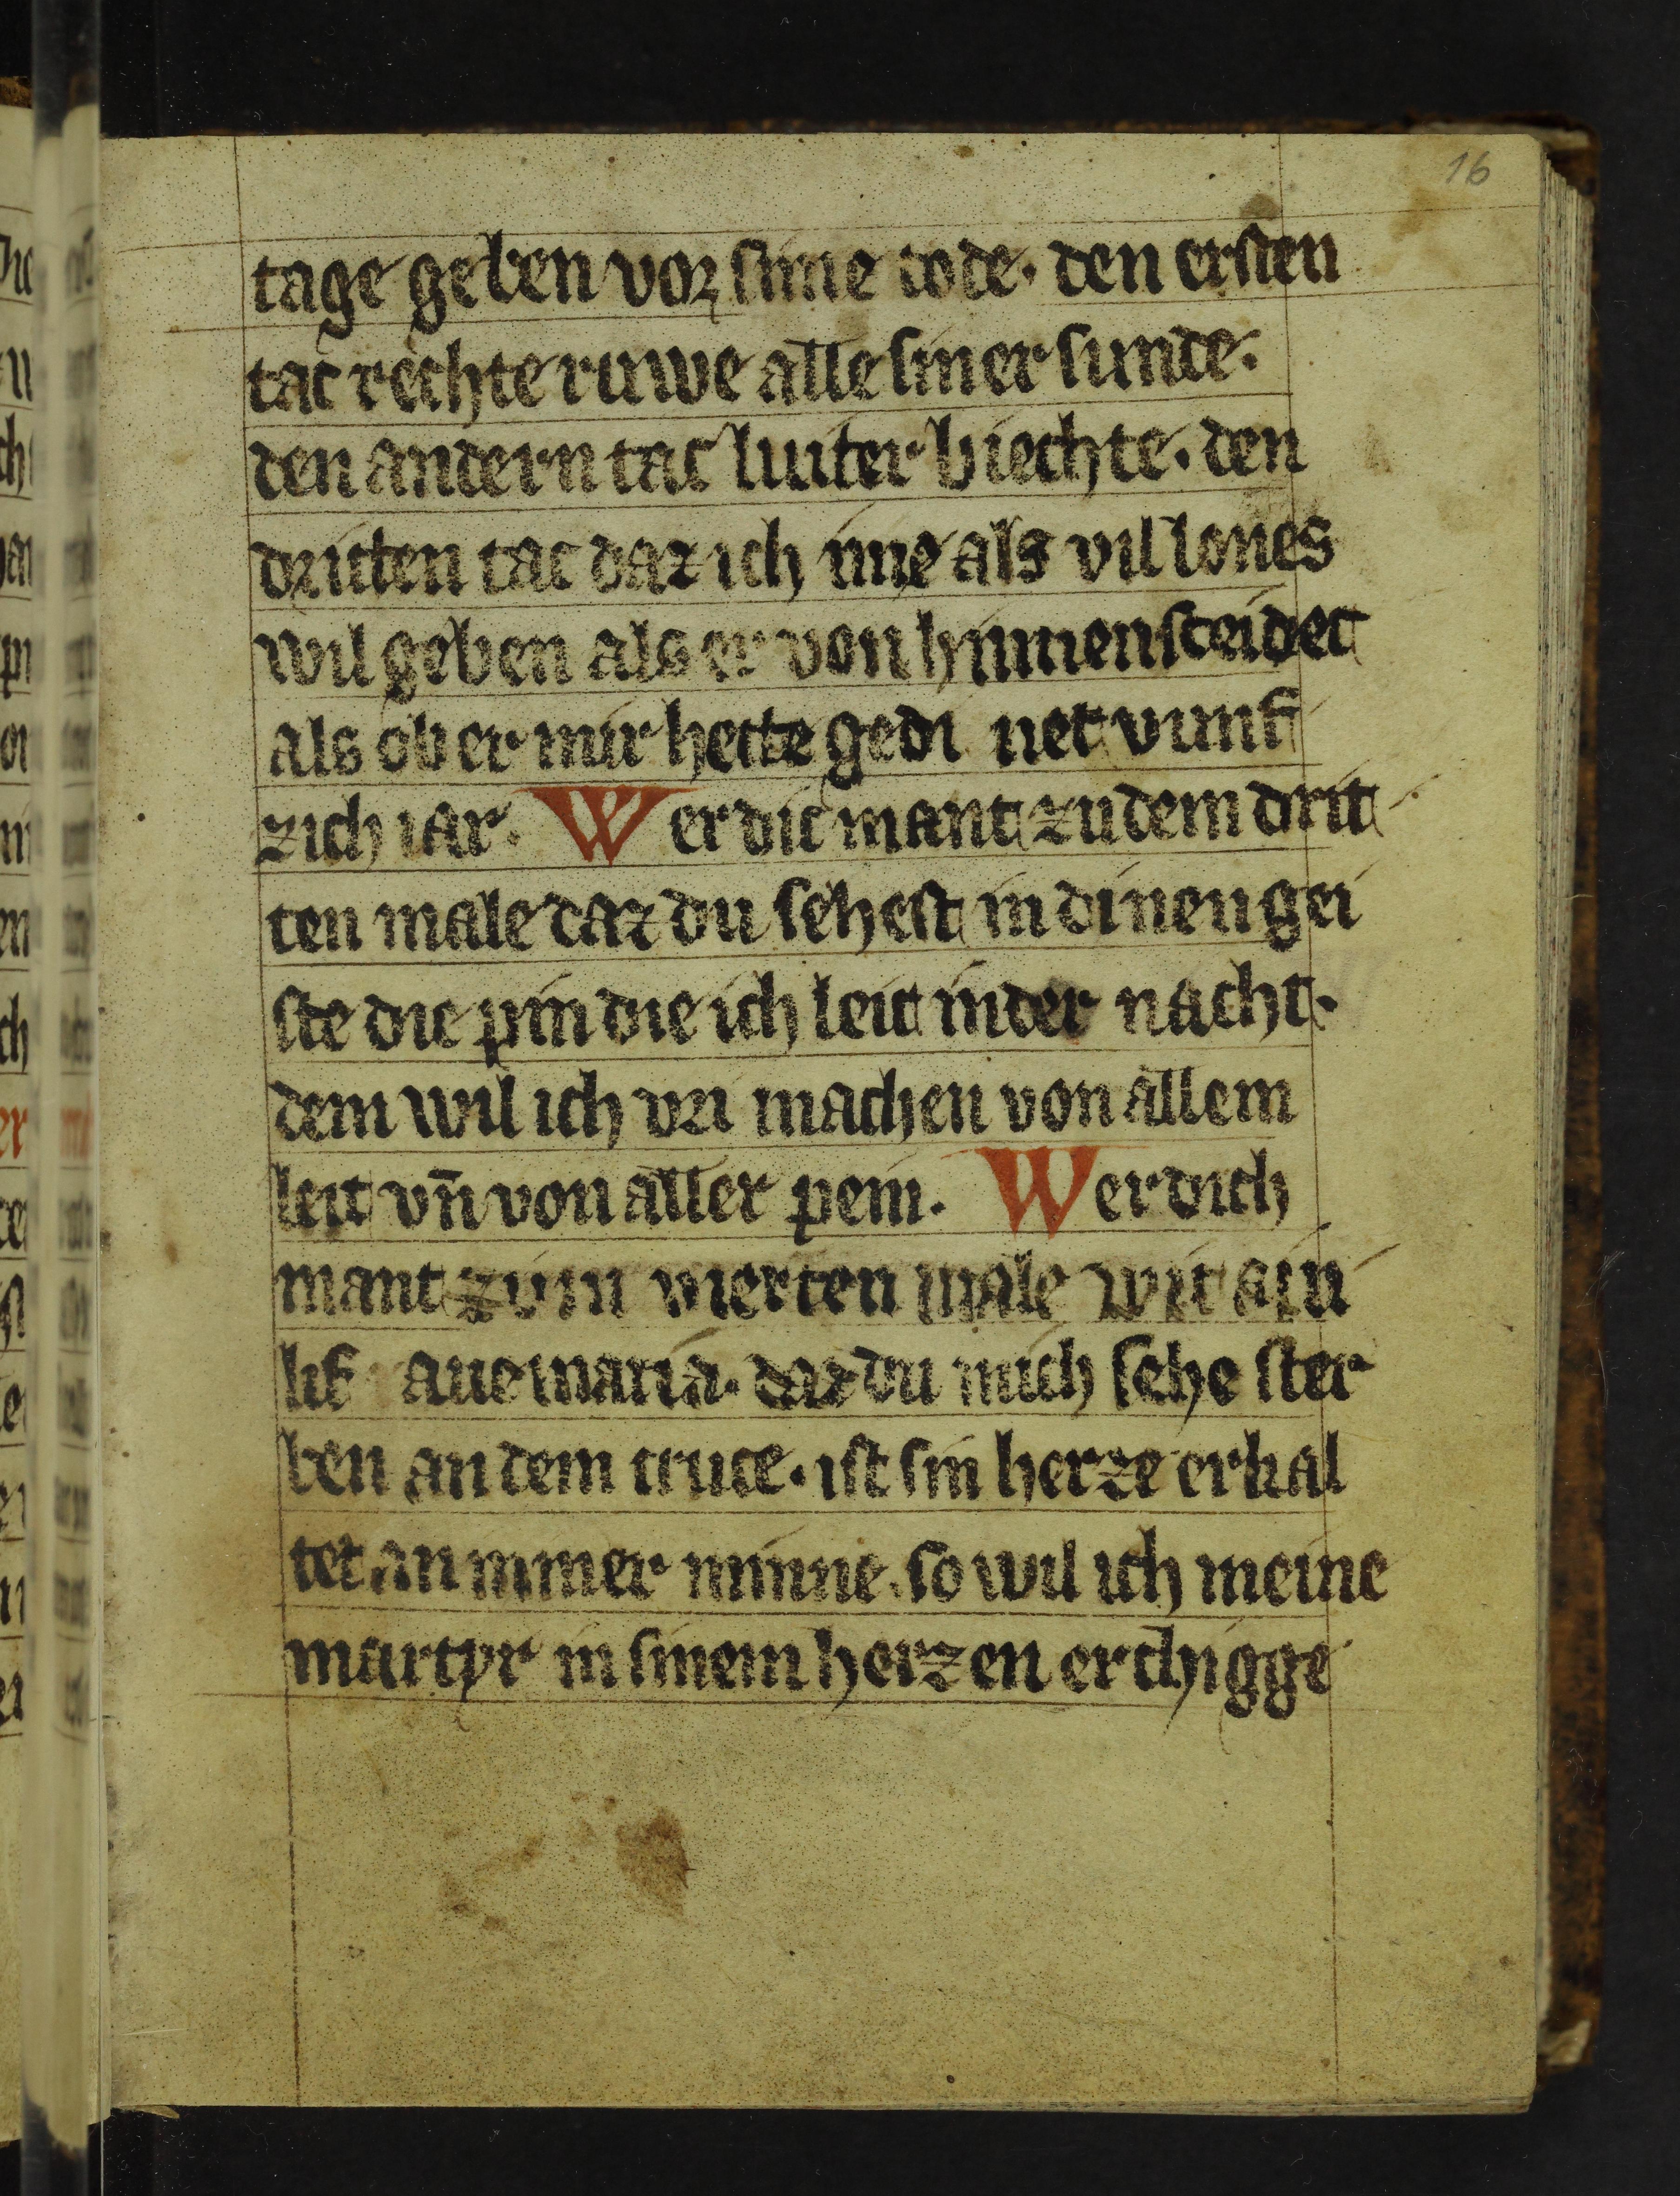 16
tage geben vor sime tode. den ersten
tac rechte ruwe alle siner sunde.
den andern tac luiter biechte. den
dritten tac daz ich ime als vil lones
wil geben als er von hinnen sceidet
als ob er mir hette gedi net vunf
zich iar. Wer dic mant zu dem drit
ten male daz du sehest in dinen gei
ste die pin die ich leit in der nacht.
dem wil ich vri machen von allem
leit vn̄ von aller pein. Wer dich
mant zum vierten male mit ain
lif aue maria. daz du mich sehe ster
ben an dem cruce. ist sin herze erkal
tet an miner minne. so wil ich meine
martyr in sinem herzen erchigge